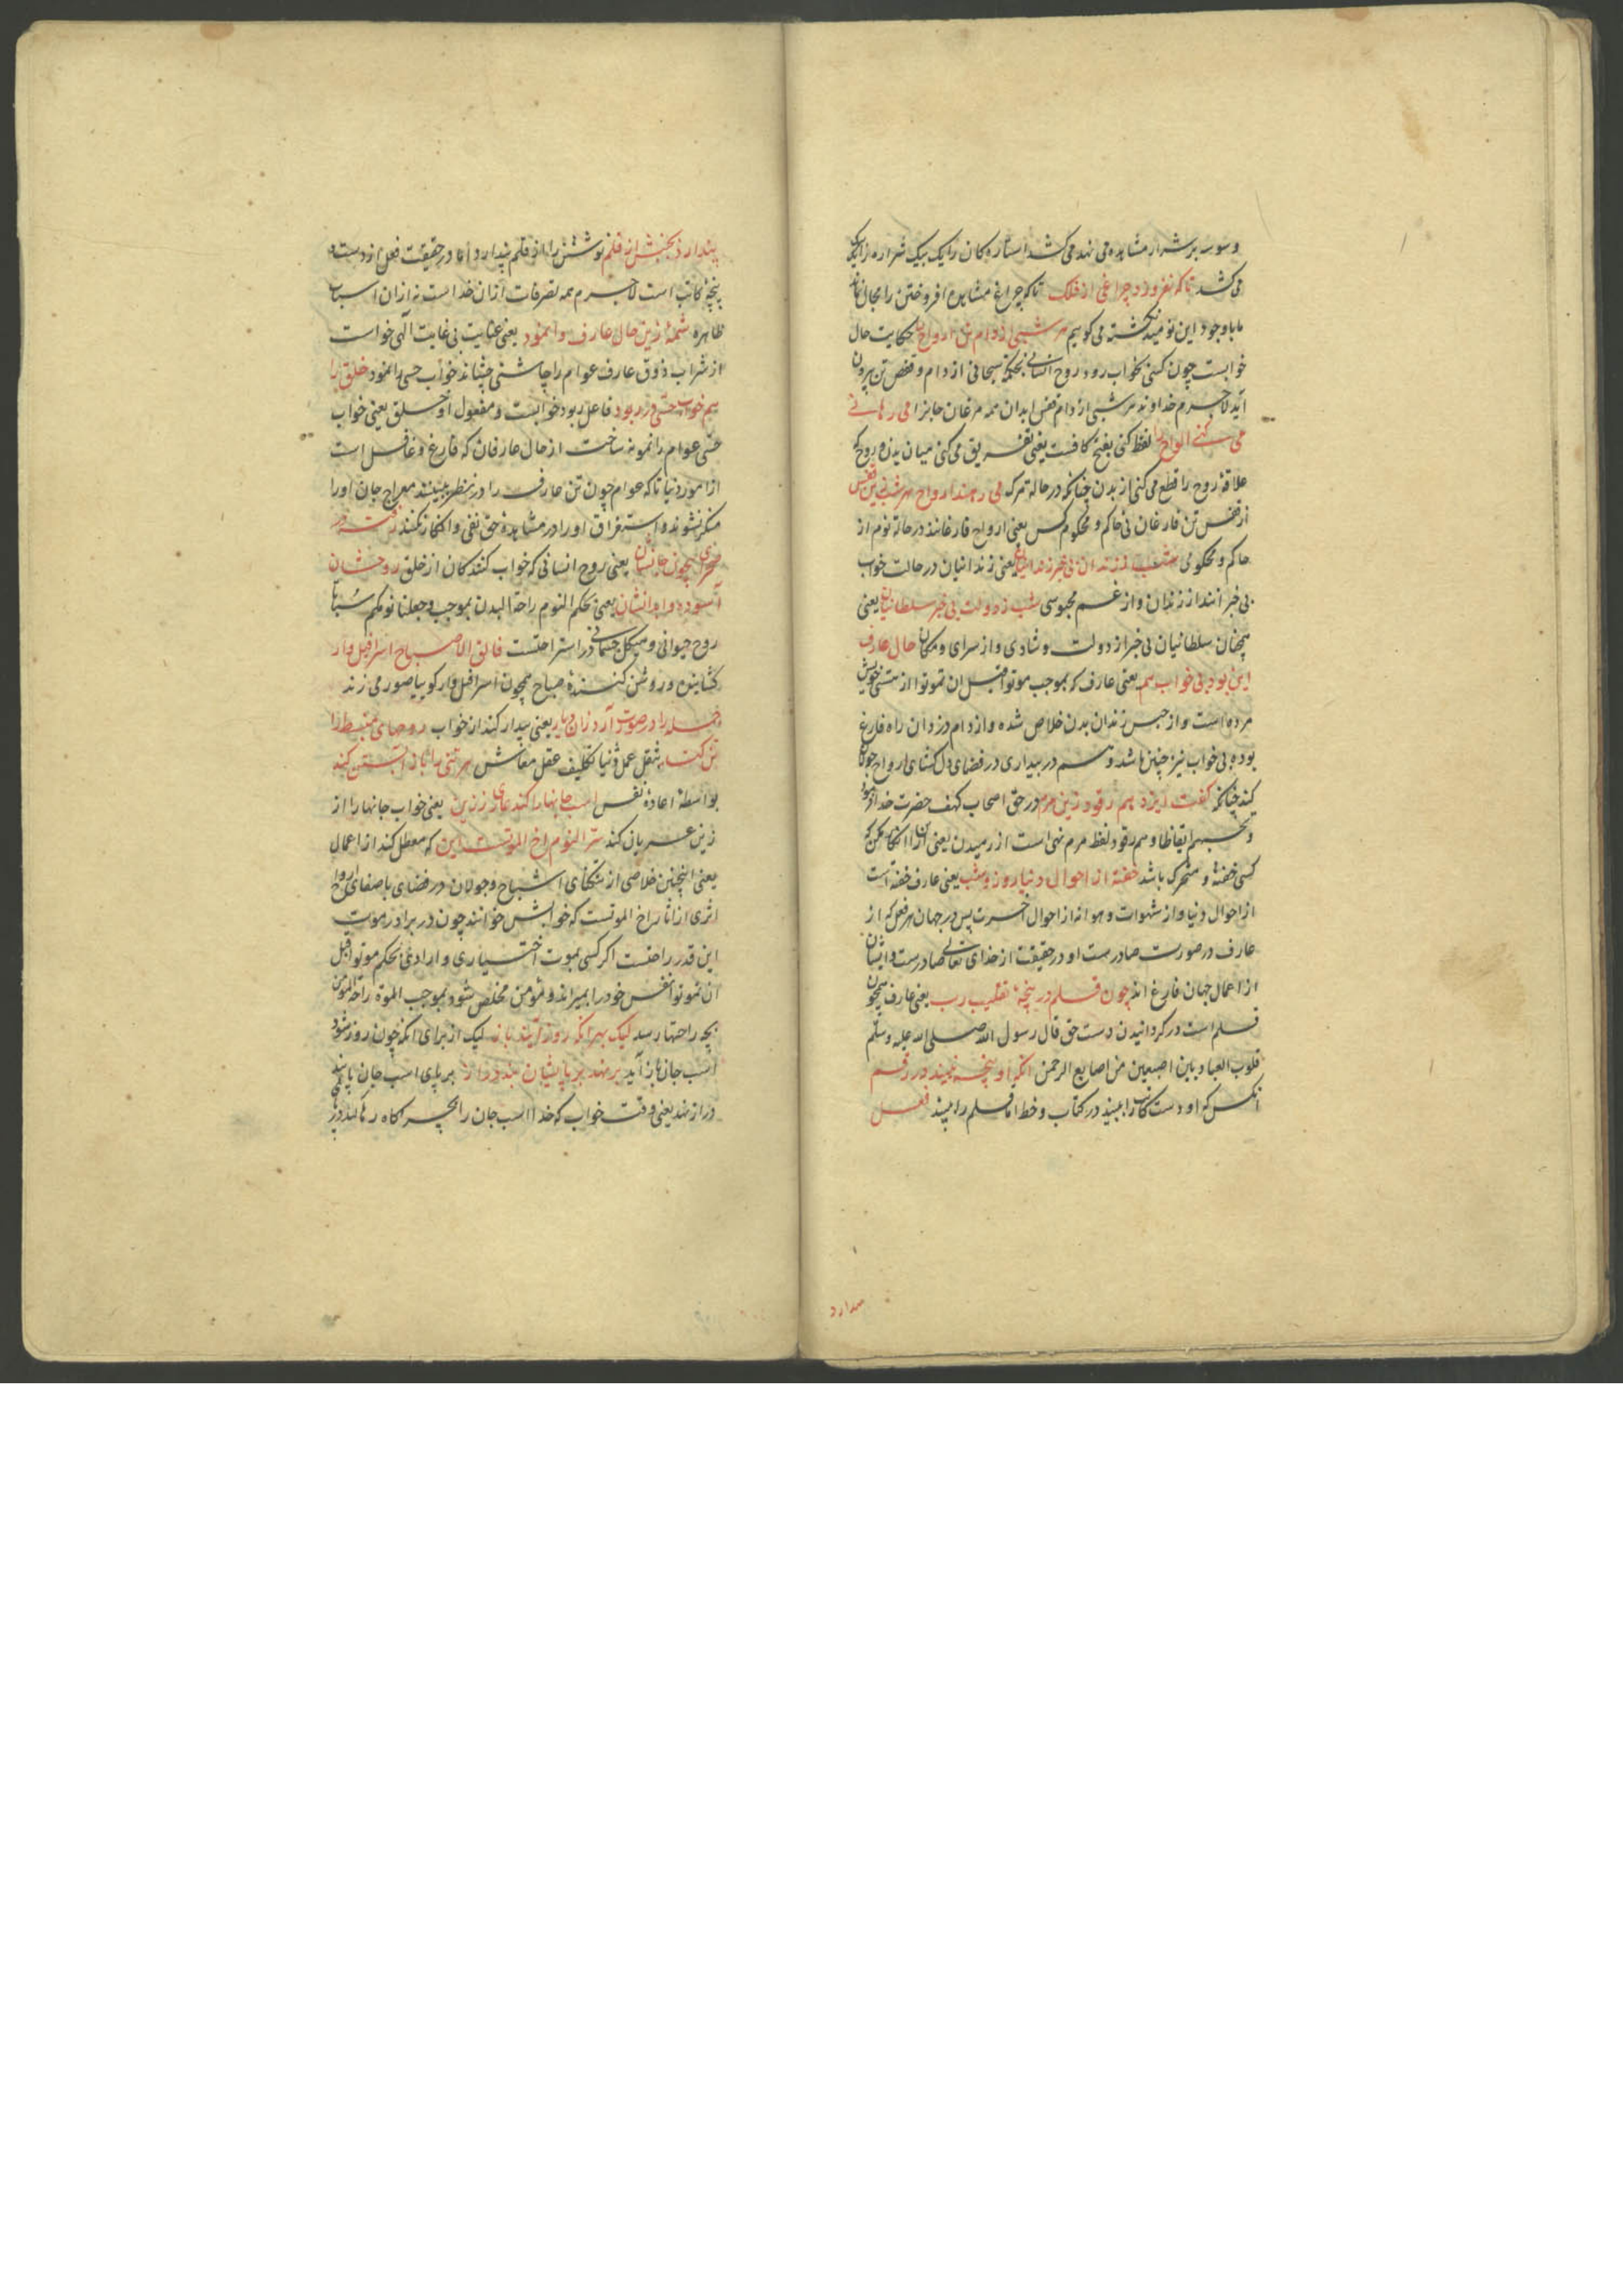 وسوسه بر شرار مشاهده می نهد می کشد استاره کان را یک بیک شراره را یک
می کشد تا که نفروزد چراغی از فلک تا که چراغ مشاهده افروختن را مجال نماند
ما با وجود این نومید نکشته می کوییم هر شبی از دام تن ارواح را حکایت حال
خوابست چون کسی بخواب رود روح انسانی بحکم سبحانی از دام و قفص تن بیرون
آید لاجرم خداوند هر شبی از دام قفس ابدان همه مرغان جانرا می رهانی
می کنی الواح را لفظ کنی بفتح کافست یعنی تفریق می کنی میان بدن و روح که
علاقهٔ روح را قطع می کنی از بدن چنانکه در حالة مرک می رهند ارواح هر شب زین قفس
از قفس تن فارغان نی حاکم و محکوم کس یعنی ارواح فارغانند در حالة نوم از
حاکم و محکومی شب ز زندان بی خبر زندانیان یعنی زندانیان در حالت خواب
بی خبرانند از زندان و از غم محبوسی شب ز دولت بی خبر سلطانیان یعنی
همچنان سلطانیان بی خبر از دولت و شادی و از سرای و مکان حال عارف
این بود بی خواب هم یعنی عارف که بموجب موتوا قبل ان تموتوا از هستی خویش
مرده است و از حبس زندان بدن خلاص شده و از دام دزدان راه فارغ
بوده بی خواب نیز چنین باشد و هم در بیداری در فضای دل کشای ارواح جولان
کند چنانکه گفت ایزد هم رقود زین مرم در حق اصحاب کهف حضرت خدا فرمود
وتحسبهم ایقاظا وهم رقود لفظ مرم نهی است از رمیدن یعنی ازان انکار مکن که
کسی خفته و متحرک باشد خفته از احوال دنیا روز و شب یعنی عارف خفته است
از احوال دنیا و از شهوات و هوا نه از احوال آخرت پس در جهان هر فعل که از
عارف در صورت صادرست او در حقیقت از خدای تعالی صادرست و ایشان
از اعمال جهان فارغ اند چون قلم در پنجهٔ تقلیب رب یعنی عارف همچون
قلم است در کردانیدن دست حق قال رسول الله صلی الله علیه وسلم
قلوب العباد بین اصبعین من اصابع الرحمن انکه او پنجه نبیند در رقم
آنکس که او دست کاتب را نبیند در کتاب و خط اما قلم را بیند فعل
پندارد
پندارد بجنبش از قلم نوشتن را از قلم پندارد و اما در حقیقت فعل از دست و
پنجهٔ کاتب است لاجرم همه تصرفات ازان خداست نه ازان اسباب
ظاهره شمهٔ زین حال عارف وا نمود یعنی عنایت بی غایت الهی خواست
از شراب ذوق عارف عوام را چاشنی چشاند خواب حسی را نمود خلق را
هم خواب حسی در ربود فاعل ربود خوابست و مفعول او خلق یعنی خواب
حسی عوام را نمونه ساخت از حال عارفان که فارغ و غافل است
از امور دنیا تا که عوام چون تن عارف را در نظر ببینند معراج جان او را
منکر نشوند و استغراق او را در مشاهدهٔ حق نفی و انکار نکنند رفته در
صحرای بیچون جانشان یعنی روح انسانی که خواب کنندکان از خلق روحشان
آسوده و ابدانشان یعنی بحکم النوم راحة البدن بموجب وجعلنا نومکم سباتا
روح حیوانی و هیکل جسمانی در استراحتست فالق الاصباح اسرافیل وار
کشاینده و روشن کنندهٔ صباح همچون اسرافیل وار کوییا صور می زند
جمله را در صورت آرد زان دیار یعنی بیدار کند از خواب روحهای منبسط را
تن کند بثقل عمل دنیا تکلیف عقل معاش هر تنی را باز آبستن کند
بواسطهٔ اعادهٔ نفس اسب جانها را کند عاری ز زین یعنی خواب جانها را از
زین عریان کند سر النوم اخ الموتست این که معطل کند از اعمال
یعنی اینچنین خلاصی از تنکنای اشباح و جولان در فضای با صفای ارواح
اثری از اثار اخ الموتست که خوابش خوانند چون در برادر موت
این قدر راحتست اکر کسی بموت اختیاری و ارادی بحکم موتوا قبل
ان تموتوا نفس خود را بمیراند و مؤمن مخلص شود بموجب الموة راحة المؤمن
بچه راحتها رسد لیک بهر انکه روز آیند باز لیک از برای انکه چون روز شود
اسب جان باز آید بر نهد بر پایشان بند دراز بر پای اسب جان پابند
دراز نهد یعنی وقت خواب که خدا اسب جان را بچراکاه رها کند در